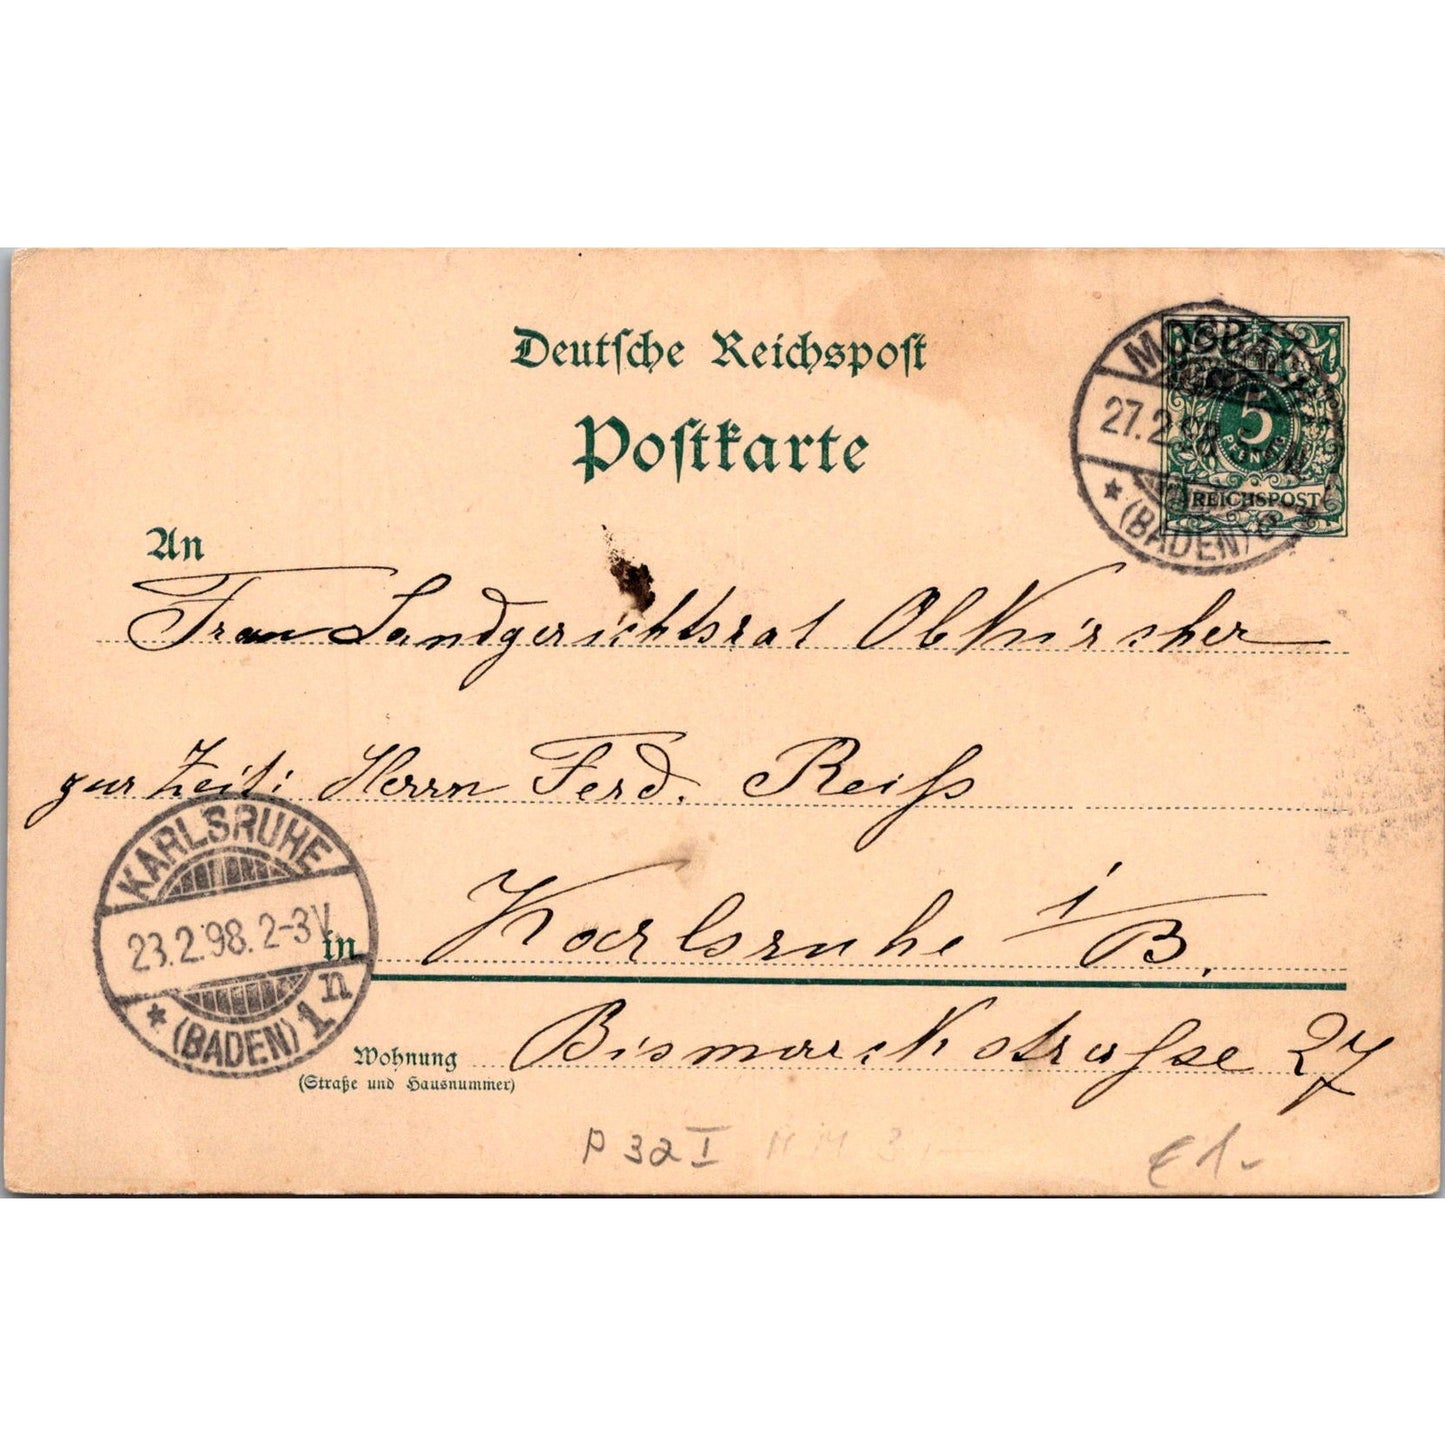 Deutsche Reichspost
Postkarte
MOSBACH
27.2.98
5
REICHSPOST
* (BADEN)
An
Frau Landgerichtsrat Obkircher
zur Zeit: Herrn Ferd. Reiß
KARLSRUHE
23.2.98. 2-3V.
* (BADEN) 1n
in Karlsruhe i/B.
Wohnung Bismarckstraße 27
(Straße und Hausnummer)
P 32 I
€ 1.-